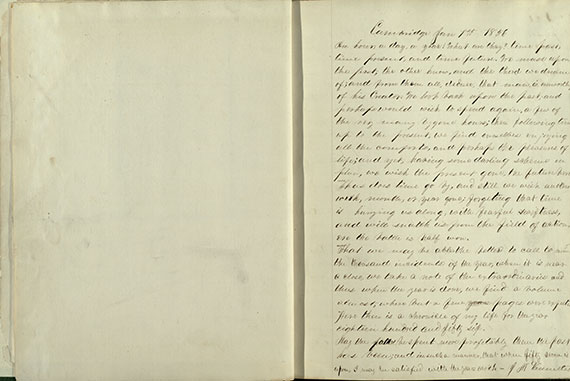 Cambridge Jan 1st 1856
An hour, a day, a year! What are they? time past,
time present, and time future. We muse upon
the first, the other know, and the third we dream
of; and from them all, learn, that man is
of his Creator. We look back upon the past, and
perhaps would wish to spend again, a few of
the very many by gone hours; then following time
up to the present, we find ourselves enjoying
all the comforts, and perhaps the pleasures of
life; and yet, having some darling scheme in
plan, we wish the present gone, the future here
Thus does time go by, and still we wish another
week, month, or year gone; forgetting that time
is hurrying us along, with fearful swiftness,
and will snatch us from the field of action
ere the battle is half won.
That we may be able the better to call to
the thousand incidents of the year, when it is near
a close, we take a note of the extraordinaries and
thus when the year is done, we find a volume
almost, where but a few pages were
Here then is a chronicle of my life for the year
eighteen hundred and fifty six.
May the be spent more profitably than the past
has been, and in such a manner, that when fifty seven is
upon I may be satisfied with the years work -